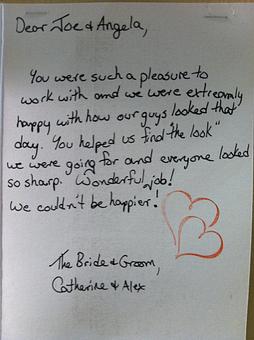 Dear Joe & Angela,
You were such a pleasure to
work with and we were extreamly
happy with how our guys looked that
day. You helped us find "the look"
we were going for and everyone looked
so sharp. Wonderful job!
We couldn't be happier!
The Bride & Groom,
Catherine & Alex